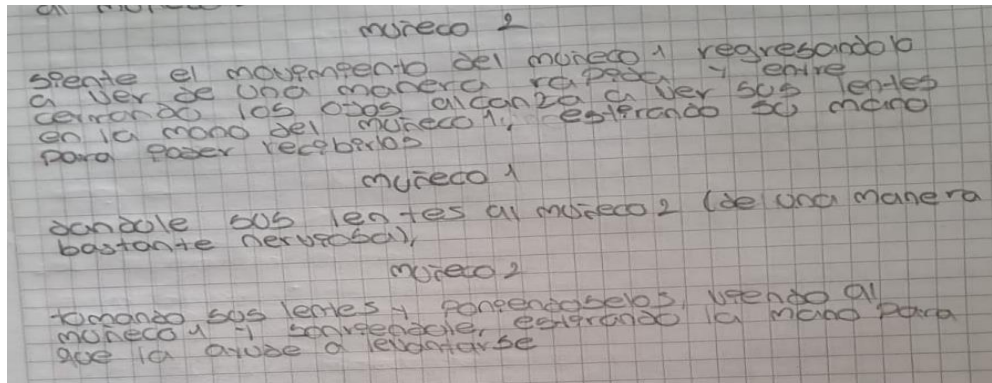 al muñeco
muñeco 2
siente el movimiento del muñeco 1 regresandolo
a ver de una manera rapida y entre
cerrando los ojos alcanza a ver sus lentes
en la mano del muñeco 1, estirando su mano
para poder recibirlos
muñeco 1
dandole sus lentes al muñeco 2 (de una manera
bastante nerviosa),
muñeco 2
tomando sus lentes y poniendoselos, viendo al
muñeco 1 y sonriendole, estirando la mano para
que la ayude a levantarse